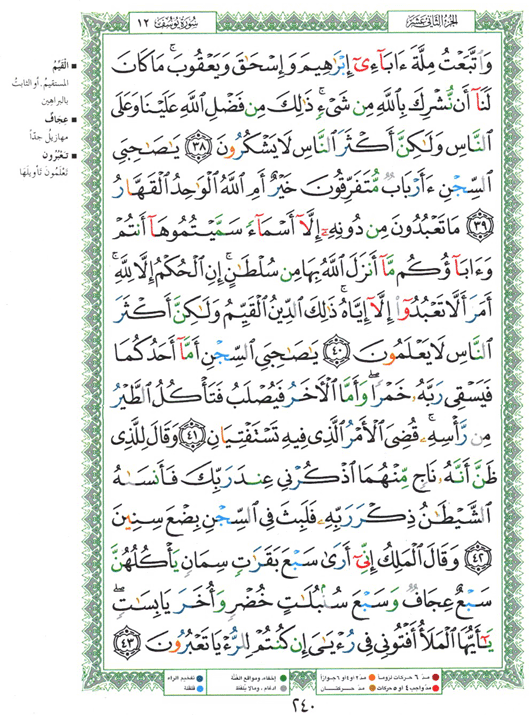 الجزء الثاني عشر
سورة يوسف ١٢
وَٱتَّبَعْتُ مِلَّةَ ءَابَآءِىٓ إِبْرَٰهِيمَ وَإِسْحَٰقَ وَيَعْقُوبَ ۚ مَا كَانَ
لَنَآ أَن نُّشْرِكَ بِٱللَّهِ مِن شَىْءٍ ۚ ذَٰلِكَ مِن فَضْلِ ٱللَّهِ عَلَيْنَا وَعَلَى
ٱلنَّاسِ وَلَٰكِنَّ أَكْثَرَ ٱلنَّاسِ لَا يَشْكُرُونَ ٣٨ يَٰصَىٰحِبَىِ
ٱلسِّجْنِ ءَأَرْبَابٌ مُّتَفَرِّقُونَ خَيْرٌ أَمِ ٱللَّهُ ٱلْوَٰحِدُ ٱلْقَهَّارُ
٣٩ مَا تَعْبُدُونَ مِن دُونِهِۦٓ إِلَّآ أَسْمَآءً سَمَّيْتُمُوهَآ أَنتُمْ
وَءَابَآؤُكُم مَّآ أَنزَلَ ٱللَّهُ بِهَا مِن سُلْطَٰنٍ ۚ إِنِ ٱلْحُكْمُ إِلَّا لِلَّهِ ۚ
أَمَرَ أَلَّا تَعْبُدُوٓا۟ إِلَّآ إِيَّاهُ ۚ ذَٰلِكَ ٱلدِّينُ ٱلْقَيِّمُ وَلَٰكِنَّ أَكْثَرَ
ٱلنَّاسِ لَا يَعْلَمُونَ ٤٠ يَٰصَىٰحِبَىِ ٱلسِّجْنِ أَمَّآ أَحَدُكُمَا
فَيَسْقِى رَبَّهُۥ خَمْرًا ۖ وَأَمَّا ٱلْءَاخَرُ فَيُصْلَبُ فَتَأْكُلُ ٱلطَّيْرُ
مِن رَّأْسِهِۦ ۚ قُضِىَ ٱلْأَمْرُ ٱلَّذِى فِيهِ تَسْتَفْتِيَانِ ٤١ وَقَالَ لِلَّذِى
ظَنَّ أَنَّهُۥ نَاجٍ مِّنْهُمَا ٱذْكُرْنِى عِندَ رَبِّكَ فَأَنسَىٰهُ
ٱلشَّيْطَٰنُ ذِكْرَ رَبِّهِۦ فَلَبِثَ فِى ٱلسِّجْنِ بِضْعَ سِنِينَ
٤٢ وَقَالَ ٱلْمَلِكُ إِنِّىٓ أَرَىٰ سَبْعَ بَقَرَٰتٍ سِمَانٍ يَأْكُلُهُنَّ
سَبْعٌ عِجَافٌ وَسَبْعَ سُنۢبُلَٰتٍ خُضْرٍ وَأُخَرَ يَابِسَٰتٍ ۖ
يَٰٓأَيُّهَا ٱلْمَلَأُ أَفْتُونِى فِى رُءْيَٰىَ إِن كُنتُمْ لِلرُّءْيَا تَعْبُرُونَ ٤٣
■ القَيِّمُ
المستقيمُ. أو الثابتُ
بالبراهينِ
■ عِجَافٌ
مهازيلُ جدّاً
■ تَعْبُرُون
تَعْلَمُونَ تأويلَهَا
مدّ ٦ حركات لزوماً مدّ ٢ أو ٤ أو ٦ جوازاً إخفاء، ومواقع الغُنَّة تفخيم الراء
مدّ واجب ٤ أو ٥ حركات مدّ حركتان ادغام، وما لا يُلفظ قلقلة
٢٤٠